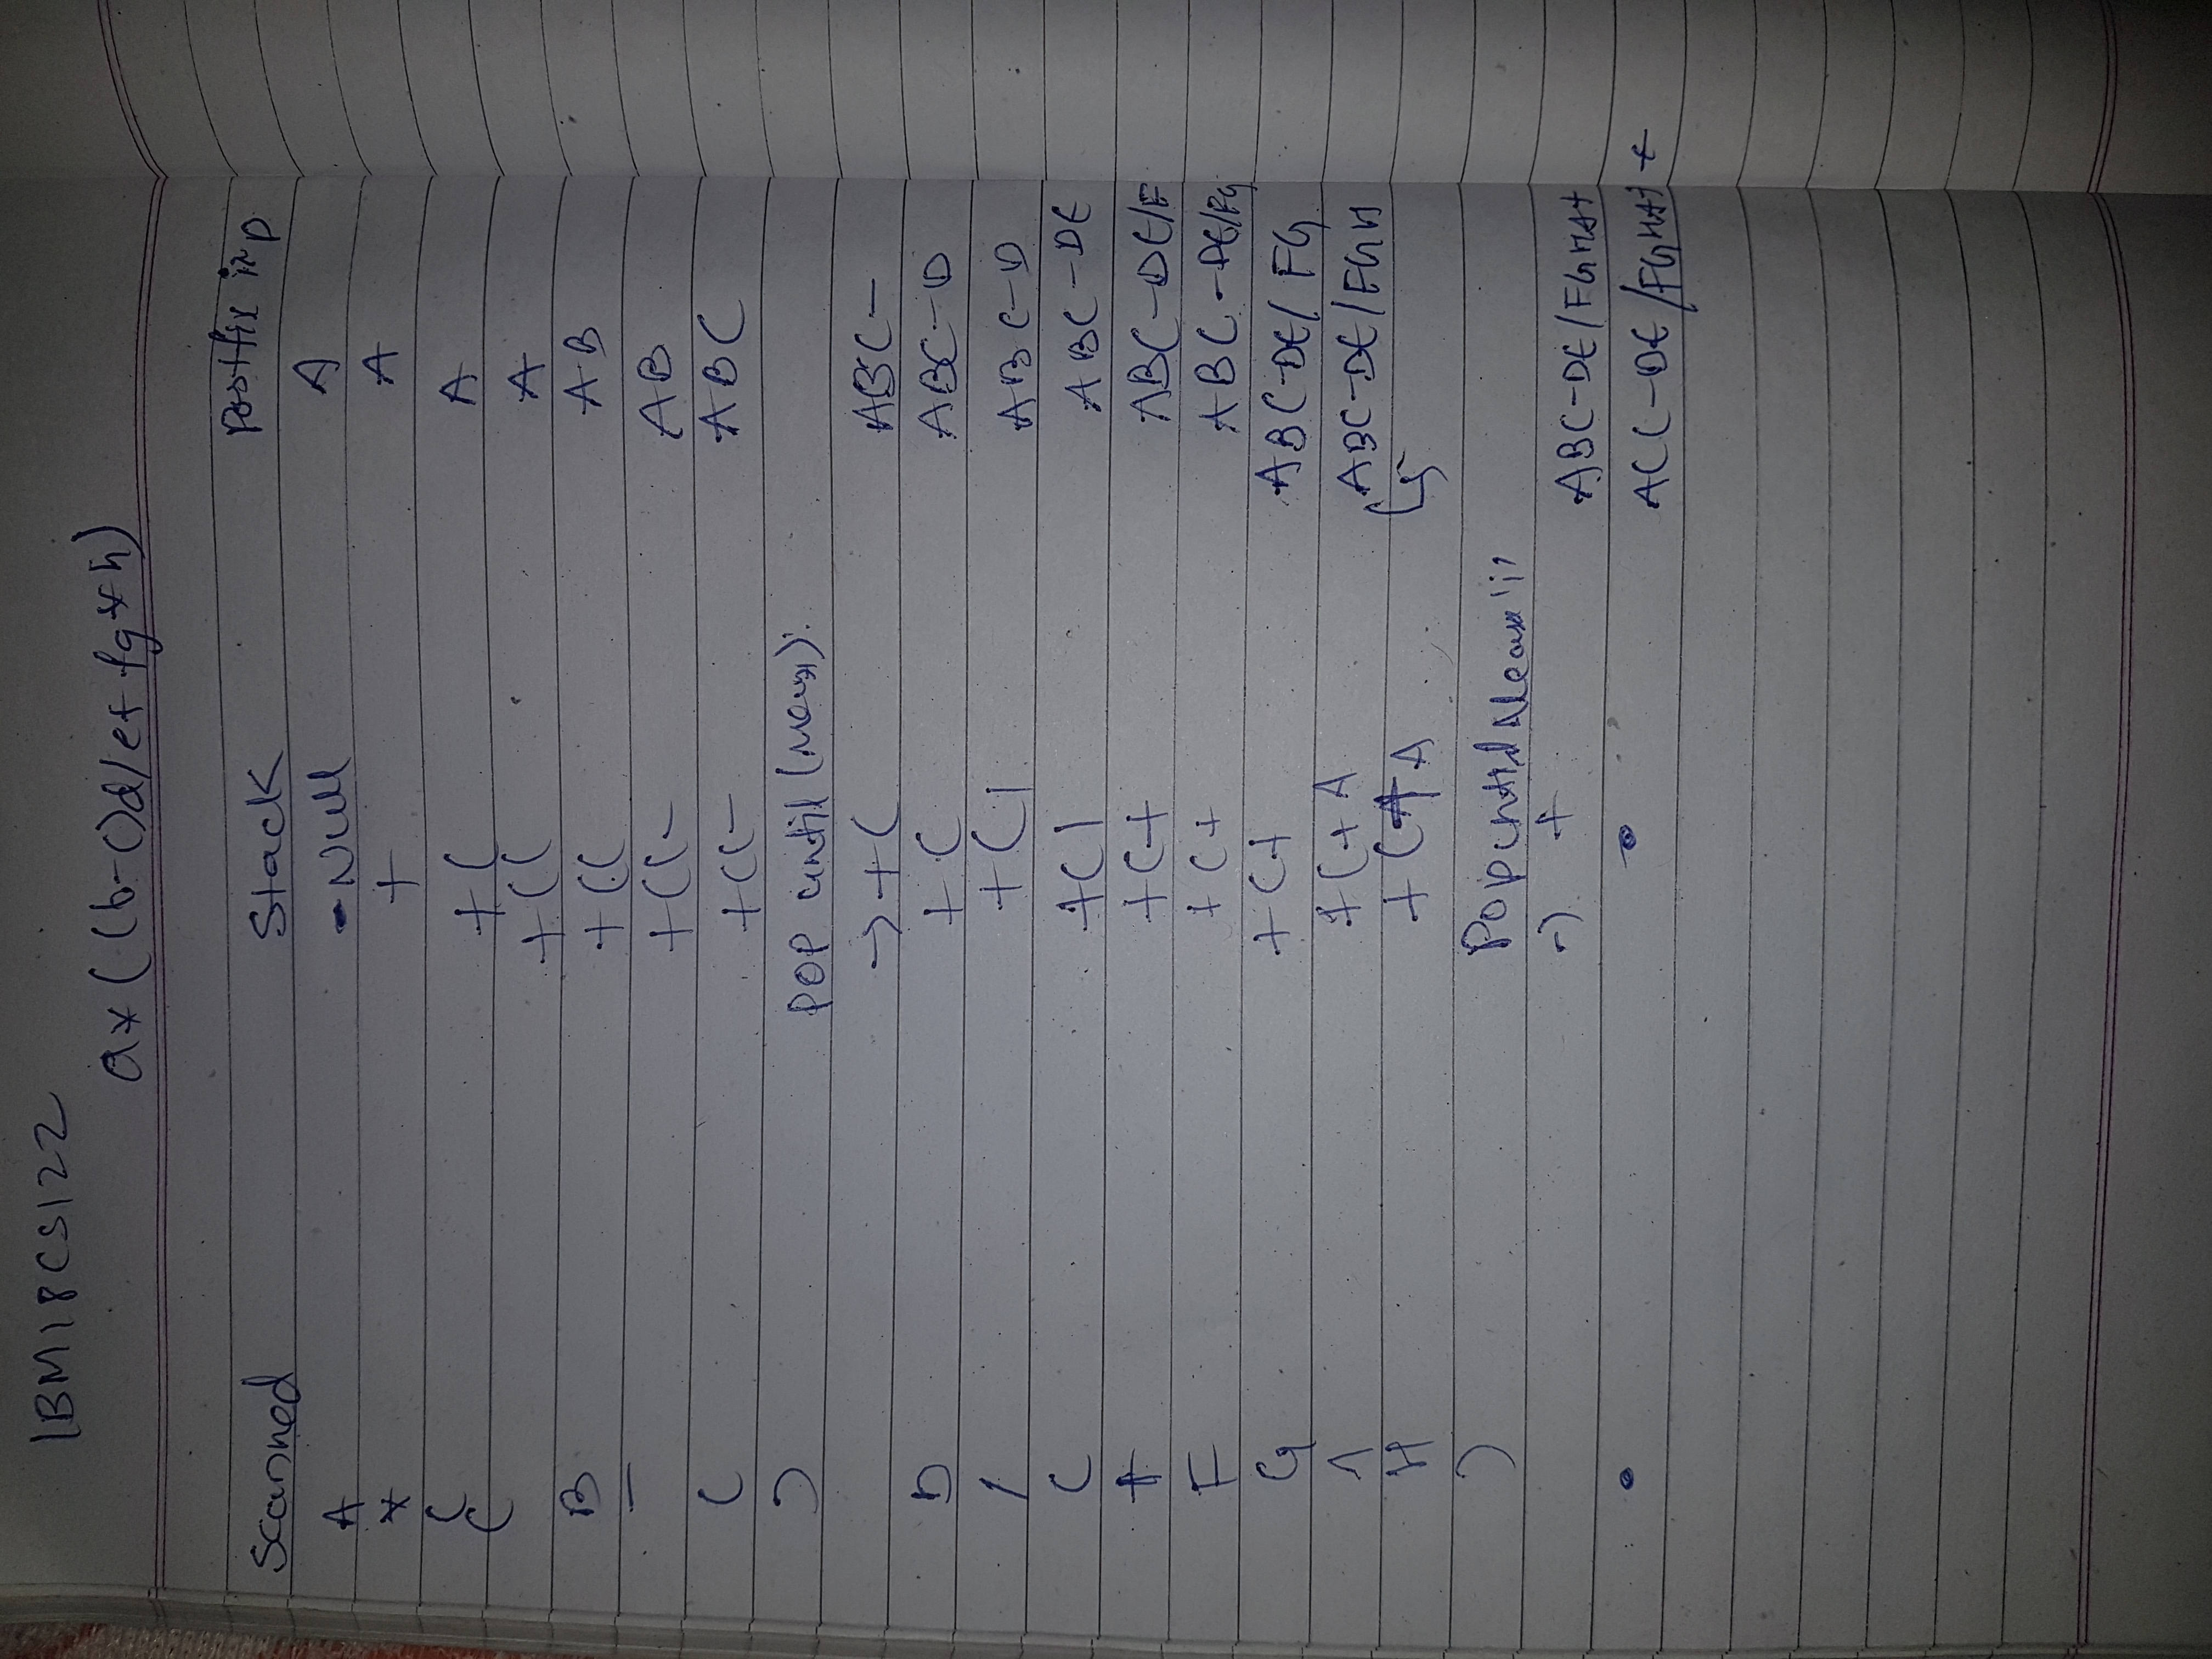 1BM18CS122
a*((b-c)d/e+fg*h)
Scanned Stack Postfix
A - Null A
* + A
( +( A
( +(( A
B +(( AB
- +((- AB
C +((- ABC
) POP until
→ +( ABC-
D +( ABC-D
/ +(/ ABC-D
C +(/ ABC-DE
+ +(+ ABC-DE/F
F +(+ ABC-DE/FG
G +(+ ABC-DE/FG
^ +(+^ ABC-DE/FGH
H +(+^
) Pop until
→ + ABC-DE/FGH^+
• • ACC-DE/FGH^++